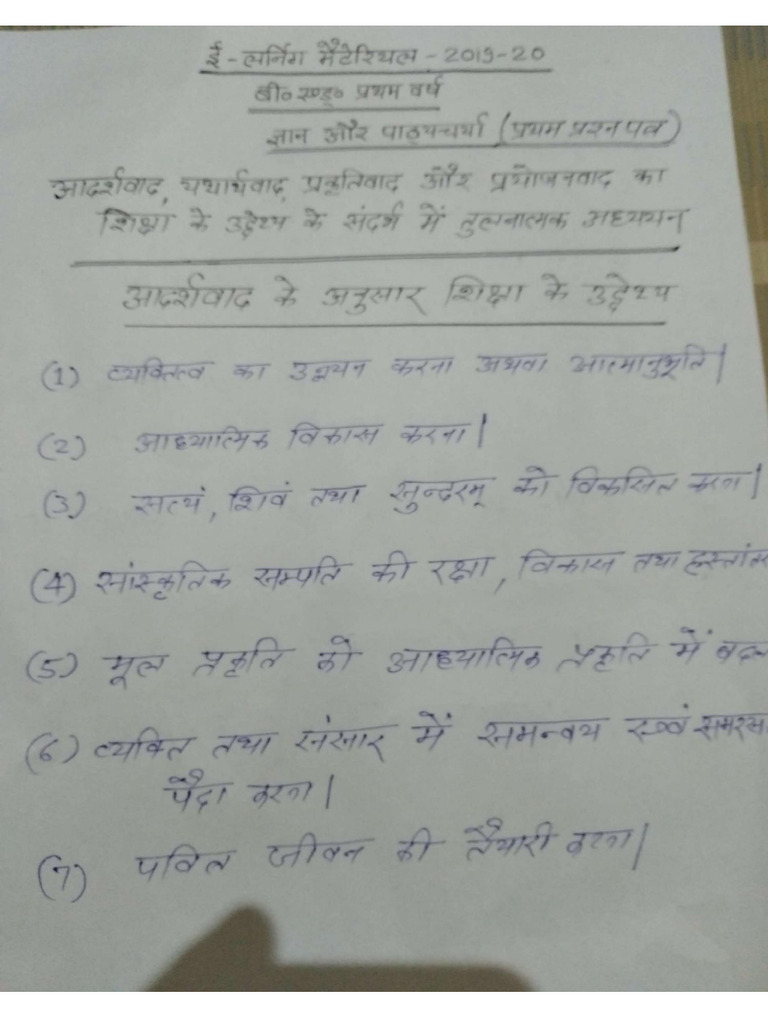 ई-लर्निग मैटेरियल - 2019-20
बी० एड० प्रथम वर्ष
ज्ञान और पाठ्यचर्या (प्रथम प्रश्न पत्र)
आदर्शवाद, यथार्थवाद, प्रकृतिवाद और प्रयोजनवाद का
शिक्षा के उद्देश्य के संदर्भ में तुलनात्मक अध्ययन
आदर्शवाद के अनुसार शिक्षा के उद्देश्य
(1) व्यक्तित्व का उन्नयन करना अथवा आत्मानुभूति|
(2) आध्यात्मिक विकास करना|
(3) सत्यं, शिवं तथा सुन्दरम् को विकसित करना|
(4) सांस्कृतिक सम्पति की रक्षा, विकास तथा
(5) मूल प्रकृति को आध्यात्मिक प्रकृति में
(6) व्यक्ति तथा संसार में समन्वय एवं
पैदा करना|
(7) पवित्र जीवन की तैयारी करना|